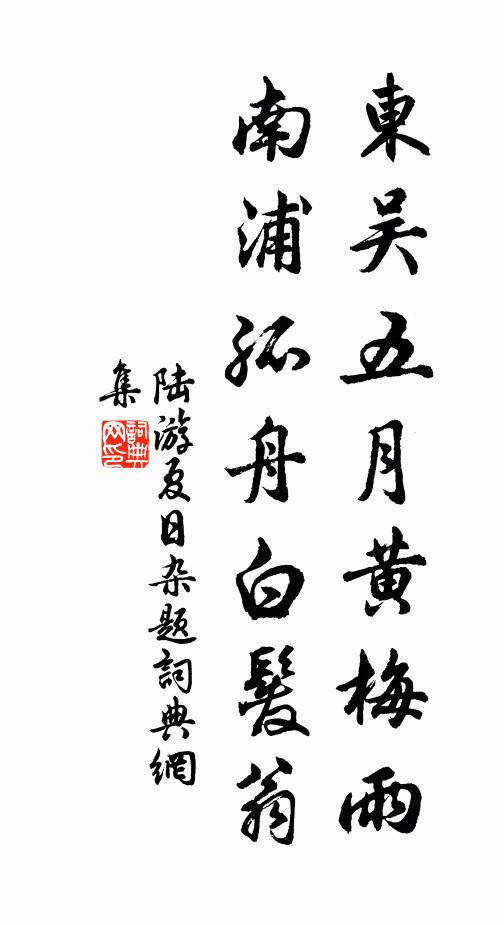 東吴五月黄梅雨
南浦孤舟白髮翁
陆游夏日杂题詞典網
集
詞典
网印